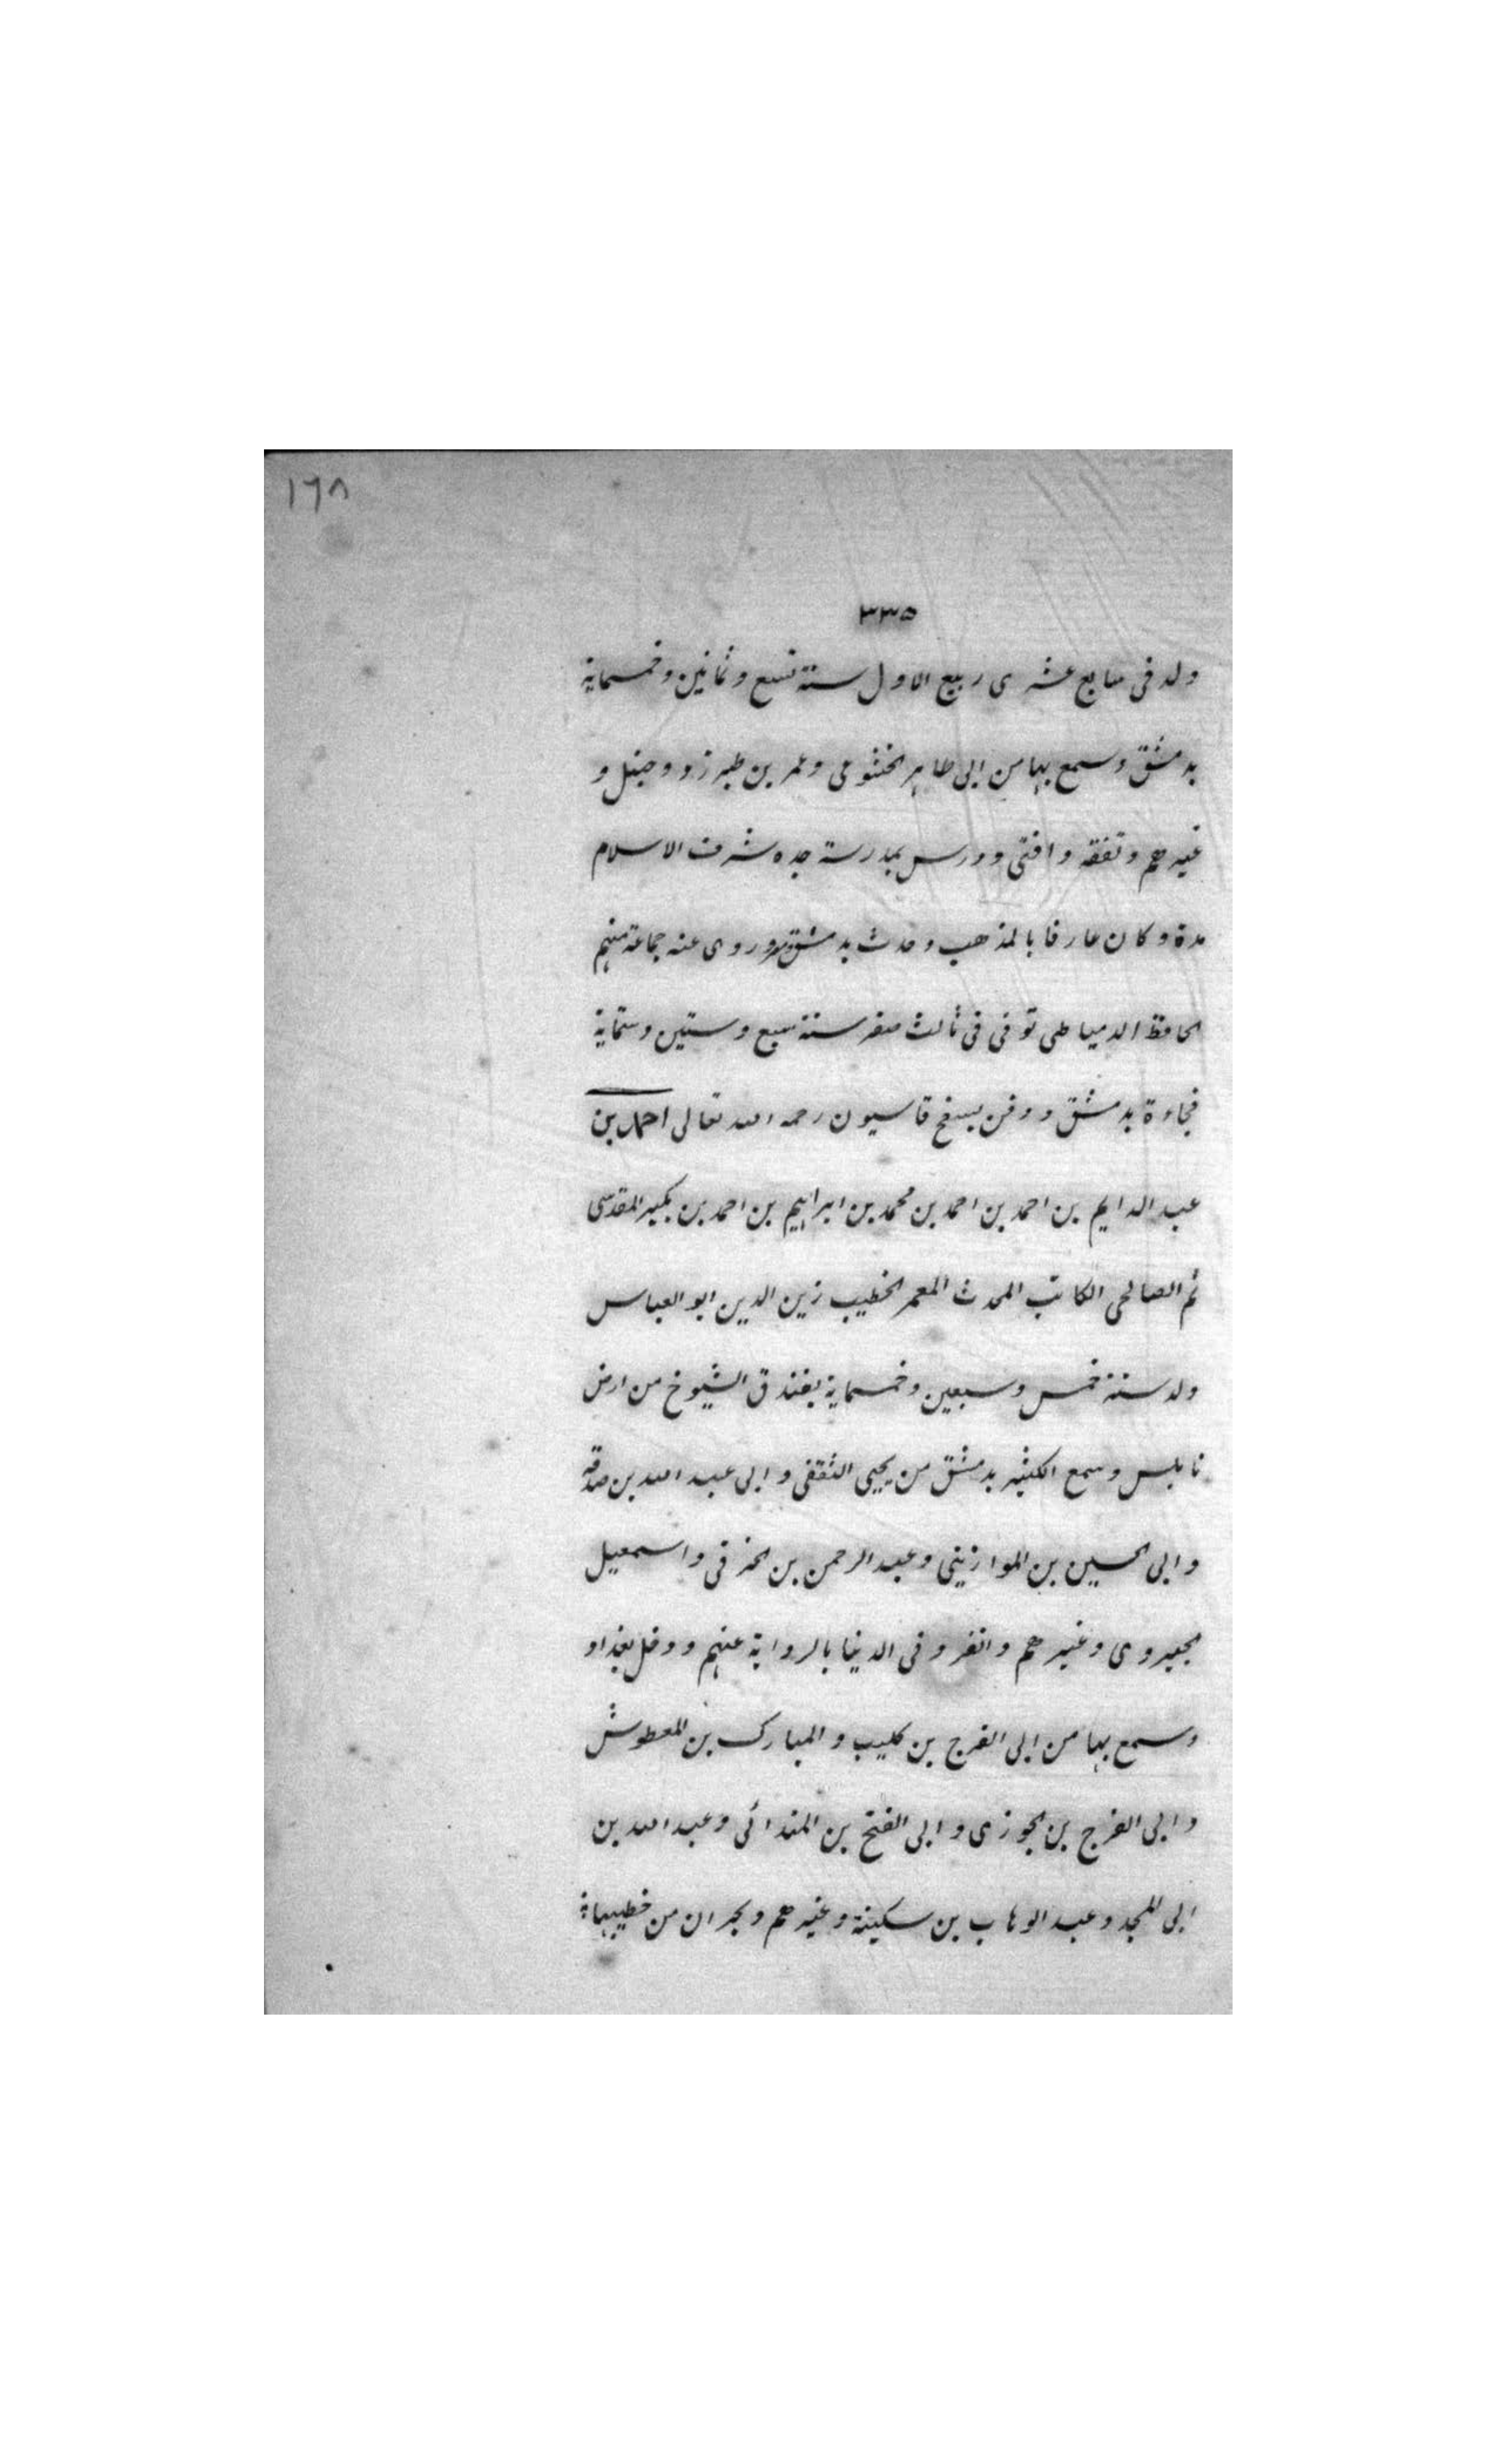 ١٦٨
٣٣٥
ولد فى سابع عشرى ربيع الاول سنة تسع وثمانين وخمسماية
بدمشق وسمع بها من ابى طاهر الخشوعى وعمر بن طبرزد وحنبل و
غيرهم وتفقه وافتى ودرس بمدرسة جده شرف الاسلام
مدة وكان عارفا بالمذهب وحدث بدمشق وروى عنه جماعة منهم
الحافظ الدمياطى توفى فى ثالث صفر سنة سبع وستين وستماية
فجاءة بدمشق ودفن بسفح قاسيون رحمه الله تعالى احمد بن
عبد الدايم بن احمد بن احمد بن محمد بن ابراهيم بن احمد بن بكير المقدسى
ثم الصالحى الكاتب المحدث المعمر الخطيب زين الدين ابو العباس
ولد سنة خمس وسبعين وخمسماية بفندق الشيوخ من ارض
نابلس وسمع الكثير بدمشق من يحيى الثقفى وابى عبد الله بن صدقه
وابى الحسين بن الموازينى وعبد الرحمن بن الخرقى واسمعيل
الجيروى وغيرهم وانفرد فى الدنيا بالرواية عنهم ودخل بغداد
وسمع بها من ابى الفرج بن كليب والمبارك بن المعطوش
وابى الفرج بن الجوزى وابى الفتح بن المندائى وعبد الله بن
ابى المجد وعبد الوهاب بن سكينة وغيرهم وبحران من خطيبها